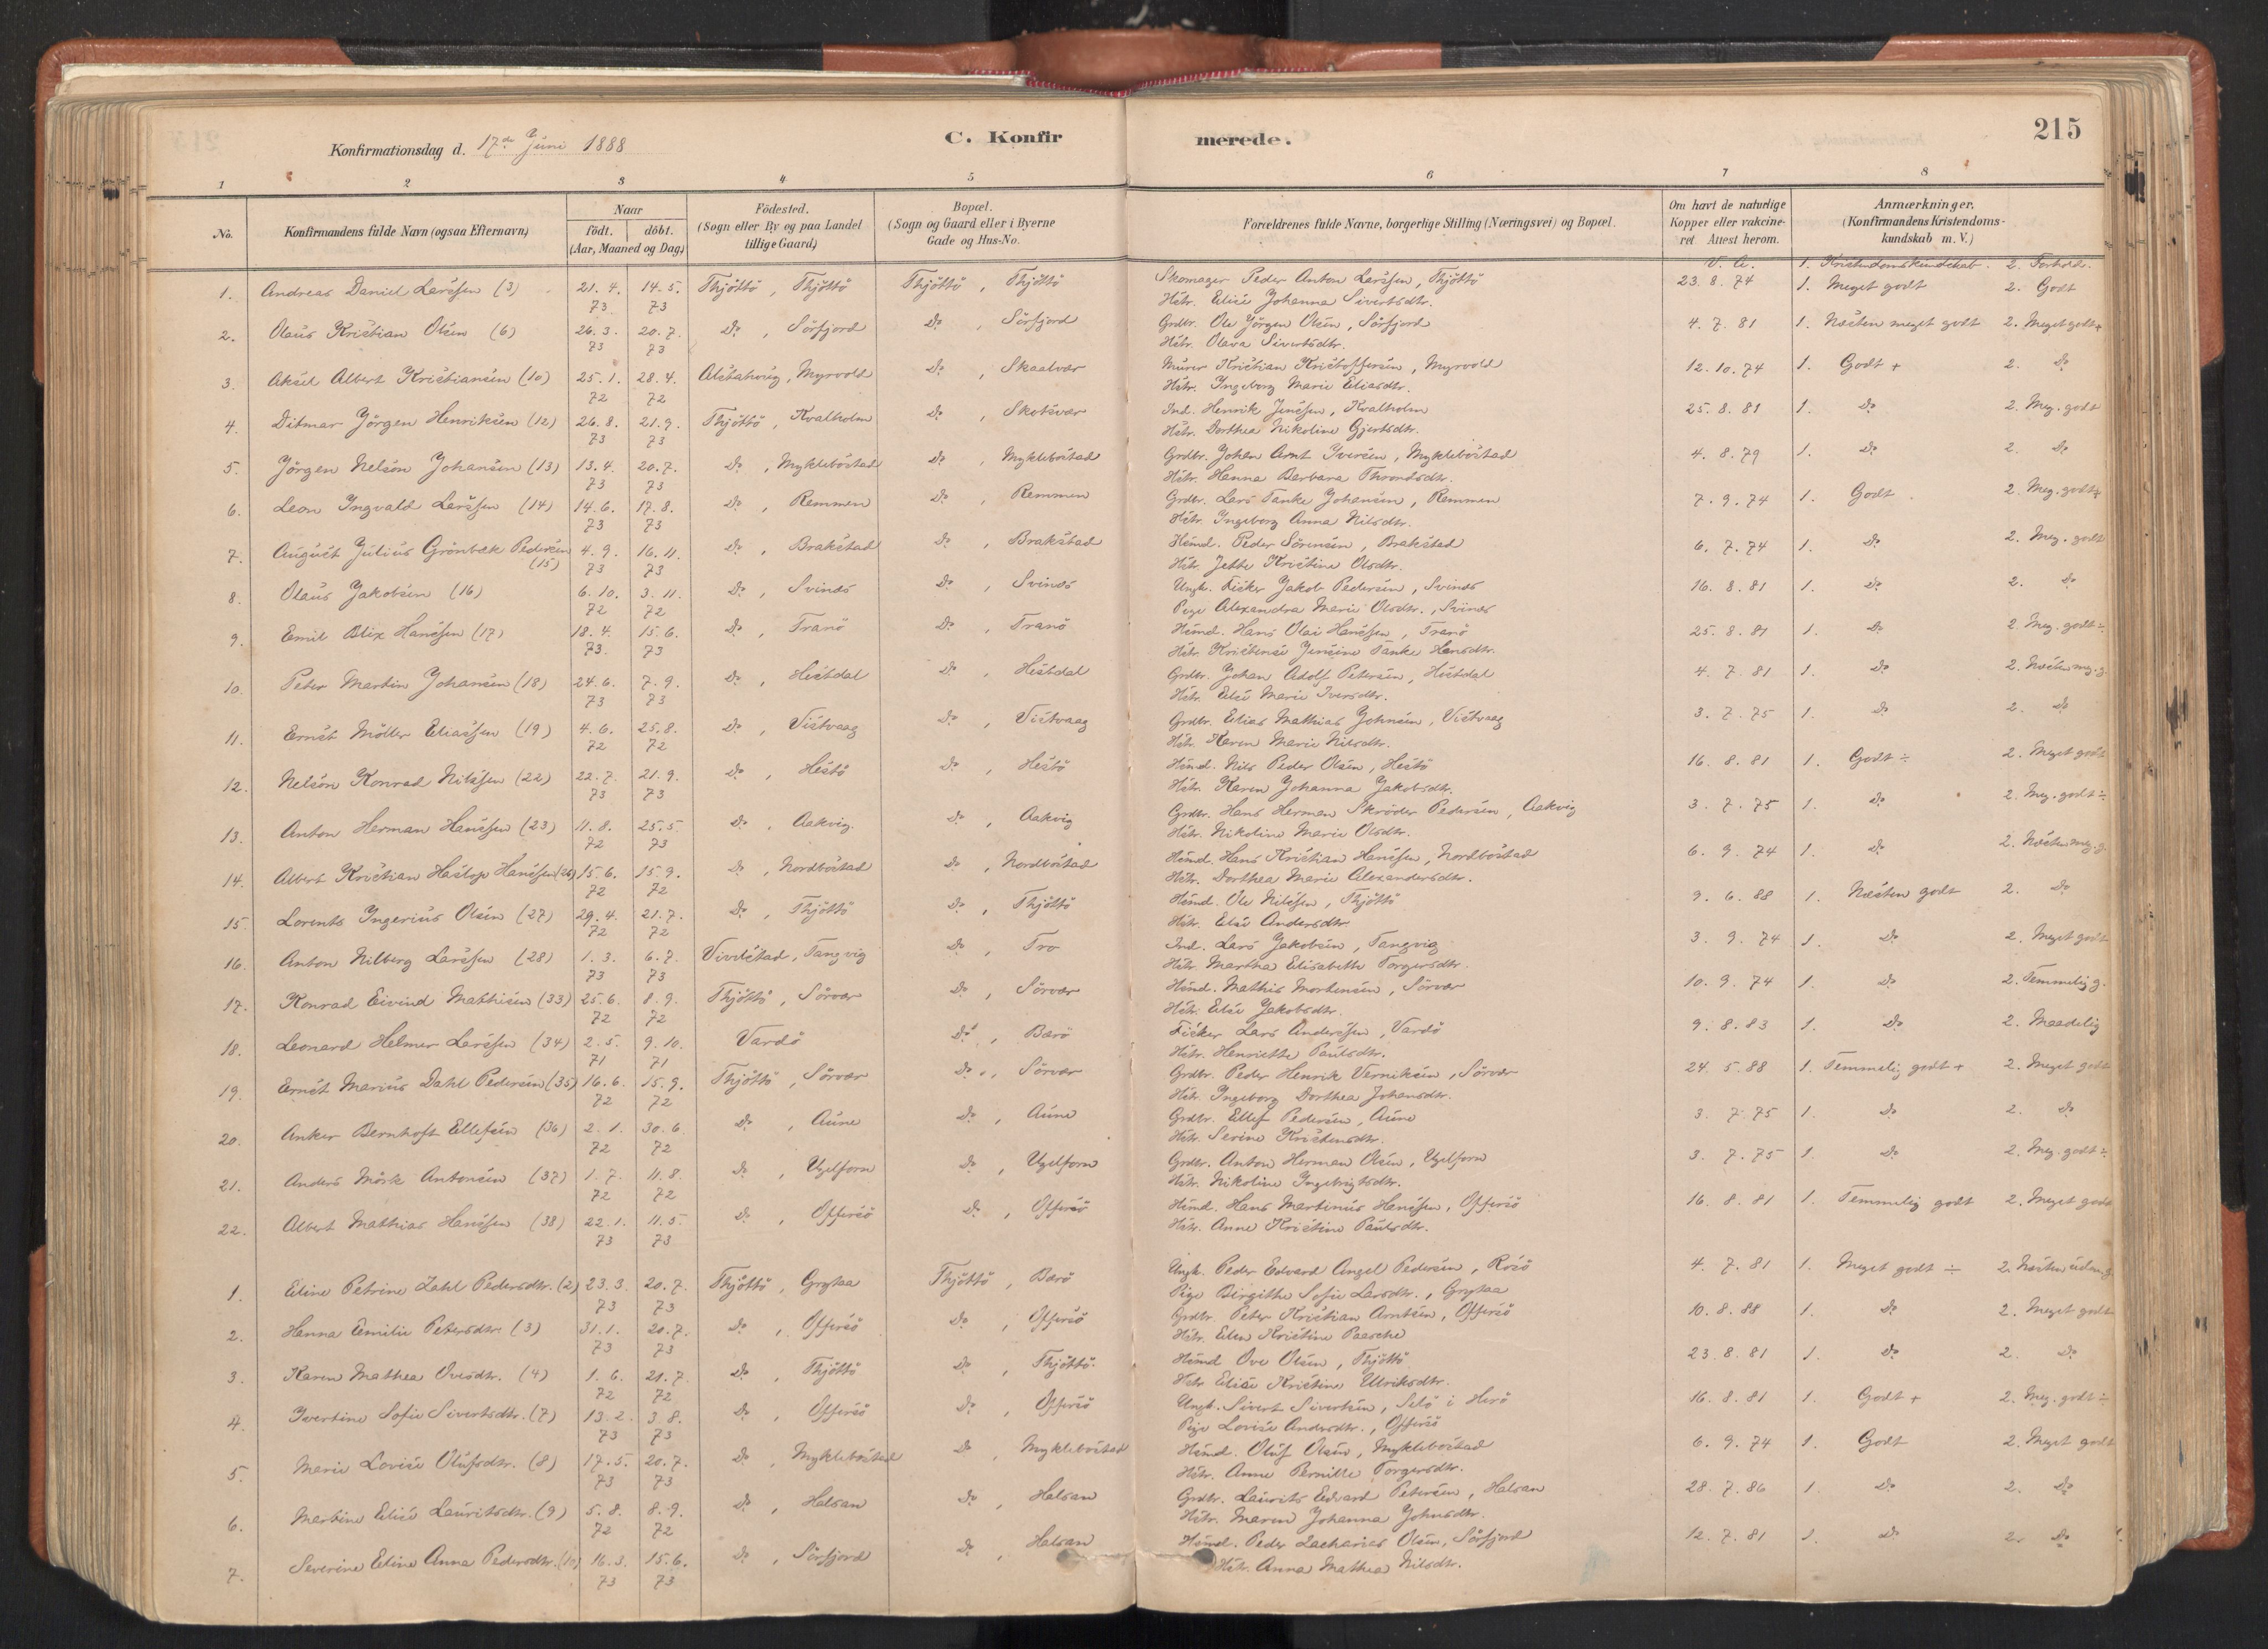 215
Konfirmationsdag d. 17de Juni 1888
C. Konfirmerede.
1 2 3 4 5 6 7 8
No.
Konfirmandens fulde Navn (ogsaa Efternavn)
Naar
födt. döbt.
(Aar, Maaned og Dag)
Födested.
(Sogn eller By og paa Landet
tillige Gaard)
Bopæl.
(Sogn og Gaard eller i Byerne
Gade og Hus-No.
Forældrenes fulde Navne, borgerlige Stilling (Næringsvei) og Bopæl.
Om havt de naturlige
Kopper eller vakcine-
ret Attest herom.
Anmærkninger.
(Konfirmandens Kristendoms-
kundskab m. V.)
V. A. 1. Kristendomskundskab. 2. Forhold.
1. Andreas Daniel Larssen (3) 21. 4. 73. 14. 5. 73 Thjöttö, Thjöttö Thjöttö, Thjöttö Skomager Peder Anton Larssen, Thjöttö 23. 8. 74 1. Meget godt 2. Godt
Hstr. Elise Johanna Sivertsdtr.
2. Olaus Kristian Olsen (6) 26. 3. 73 20. 7. 73 Do, Sörfjord Do, Sörfjord Grdbr. Ole Jörgen Olsen, Sörfjord 4. 7. 81 1. Næsten meget godt 2. Meget godt+
Hstr. Olava Sivertsdtr.
3. Aksel Albert Kristiansen (10) 25. 1. 72 28. 4. 72 Alstahoug, Myrvold Do, Skaalvær Murer Kristian Kristoffersen, Myrvold 12. 10. 74 1. Godt + 2. Do
Hstr. Ingeborg Marie Eliasdtr.
4. Ditmar Jörgen Henriksen (12) 26. 8. 73 21. 9. 73 Thjöttö, Kvalholm Do, Skotsvær Ind. Henrik Jenssen, Kvalholm 25. 8. 81 1. Do 2. Meg. godt
Hstr. Dorthea Nikoline Gjertsdtr.
5. Jörgen Nelson Johansen (13) 13. 4. 73 20. 7. 73 Do, Myklebostad Do, Myklebostad Grdbr. Johan Arnt Iversen, Myklebostad 4. 8. 79 1. Do 2. Do
Hstr. Hanna Barbara Throndsdtr.
6. Leon Ingvald Larssen (14) 14. 6. 73 17. 8. 73 Do, Remmen Do, Remmen Grdbr. Lars Tanke Johansen, Remmen 7. 9. 74 1. Godt 2. Meg. godt+
Hstr. Ingeborg Anna Nilsdtr.
7. August Julius Grönbæk Pedersen (15) 4. 9. 73 16. 11. 73 Do, Brakstad Do, Brakstad Hsmd. Peder Sörensen, Brakstad 6. 7. 74 1. Do 2. Meg. godt
Hstr. Jette Kristine Olsdtr.
8. Olaus Jakobsen (16) 6. 10. 72 3. 11. 72 Do, Svinæs Do, Svinæs Ungk. Fisker Jakob Pedersen, Svinæs 16. 8. 81 1. Do 2. Do
Pige Alexandra Marie Olsdtr., Svinæs
9. Emil Blix Hanssen (17) 18. 4. 73. 15. 6. 73 Do, Tranö Do, Tranö Hsmd. Hans Olai Hanssen, Tranö 25. 8. 81 1. Do 2. Meg. godt ÷
Hstr. Kristense Jensine Tanke Hansdtr.
10. Peter Martin Johansen (18) 24. 6. 73 7. 9. 73 Do, Hestdal Do, Hestdal Grdbr. Johan Adolf Petersen, Hestdal 4. 7. 81 1. Do 2. Næsten meg. g.
Hstr. Else Marie Iversdtr.
11. Ernst Möller Eliassen (19) 4. 6. 72 25. 8. 72 Do, Vistvaag Do, Vistvaag Grdbr. Elias Mathias Johnsen, Vistvaag 3. 7. 75 1. Do 2. Do
Hstr. Karen Marie Nilsdtr.
12. Nelson Konrad Nilssen (22) 22. 7. 73 21. 9. 73 Do, Hestö Do, Hestö Hsmd. Nils Peder Olsen, Hestö 16. 8. 81 1. Godt ÷ 2. Meget godt
Hstr. Karen Johanna Jakobsdtr.
13. Anton Herman Hanssen (23) 11. 8. 72 25. 5. 73 Do, Aakvig Do, Aakvig Grdbr. Hans Herman Skröder Pedersen, Aakvig 3. 7. 75 1. Do 2. Meg. godt ÷
Hstr. Nikoline Marie Olsdtr.
14. Albert Kristian Haslop Hanssen (26) 15. 6. 72 15. 9. 72 Do, Nordbostad Do, Nordbostad Hsmd. Hans Kristian Hanssen, Nordbostad 6. 9. 74 1. Do 2. Næsten meg. g.
Hstr. Dorthea Marie Alexandersdtr.
15. Lorents Ingerius Olsen (27) 29. 4. 72 21. 7. 72 Do, Thjöttö Do, Thjöttö Hsmd. Ole Nilssen, Thjöttö 9. 6. 88 1. Næsten godt 2. Do
Hstr. Else Andersdtr.
16. Anton Nilberg Larssen (28) 1. 3. 73 6. 7. 73 Vivelstad, Tangvig Do, Tro Ind. Lars Jakobsen, Tangvig 3. 9. 74 1. Do 2. Meget godt
Hstr. Martha Elisabeth Torgersdtr.
17. Konrad Eivind Mathisen (33) 25. 6. 72 8. 9. 72 Thjöttö, Sörvær Do, Sörvær Hsmd. Mathis Mortensen, Sörvær 10. 9. 74 1. Do 2. Temmelig g.
Hstr. Else Jakobsdtr.
18. Leonard Helmer Larssen (34) 2. 5. 71 9. 10. 71 Vardö Do, Barö Fisker Lars Anderssen, Vardö 9. 8. 83 1. Do 2. Maadelig
Hstr. Henriette Paulsdtr.
19. Ernst Marius Dahl Pedersen (35) 16. 6. 72 15. 9. 72 Thjöttö, Sörvær Do, Sörvær Grdbr. Peder Henrik Verniksen, Sörvær 24. 5. 88 1. Temmelig godt + 2. Meget godt
Hstr. Ingeborg Dorthea Johansdtr.
20. Anker Bernhoft Ellefsen (36) 2. 1. 72 30. 6. 72 Do, Aune Do, Aune Grdbr. Ellef Pedersen, Aune 3. 7. 75 1. Do 2. Do
Hstr. Serine Kristensdtr.
21. Anders Mörk Antonsen (37) 1. 7. 72 11. 8. 72 Do, Ugelforn Do, Ugelforn Grdbr. Anton Herman Olsen, Ugelforn 3. 7. 75 1. Do 2. Meg. godt ÷
Hstr. Nikoline Ingebrigtsdtr.
22. Albert Mathias Hanssen (38) 22. 1. 73 11. 5. 73 Do, Offersö Do, Offersö Hsmd. Hans Martinus Hanssen, Offersö 16. 8. 81 1. Temmelig godt 2. Meget godt
Hstr. Anne Kristine Paulsdtr.
1. Eline Petrine Zahl Pedersdtr. (2) 23. 3. 73 20. 7. 73 Thjöttö, Grytaa Thjöttö, Barö Ungk. Peder Edvard Angel Pedersen, Rosö 4. 7. 81 1. Meget godt ÷ 2. Næsten udm. g.
Pige Birgithe Sofie Larsdtr., Grytaa
2. Hanna Emilie Petersdtr. (3) 31. 1. 73 20. 7. 73 Do, Offersö Do, Offersö Grdbr. Peter Kristian Arntsen, Offersö 10. 8. 88 1. Do 2. Meget godt
Hstr. Elen Kristine Paasche
3. Karen Mathea Ovesdtr. (4) 1. 6. 72 21. 7. 72 Do, Thjöttö Do, Thjöttö. Hsmd Ove Olsen, Thjöttö 23. 8. 81 1. Do 2. Do
Hstr Elise Kristine Ulriksdtr.
4. Ivertine Sofie Sivertsdtr. (7) 13. 2. 73 3. 8. 73 Do, Offersö Do, Offersö Ungk. Sivert Sivertsen, Selö i Herö 16. 8. 81 1. Godt + 2. Meg. godt ÷
Pige Lovise Andersdtr., Offersö
5. Marie Lovise Olufsdtr. (8) 17. 5. 73 20. 7. 73 Do, Myklebostad Do, Myklebostad Hsmd. Oluf Olsen, Myklebostad 6. 9. 74 1. Godt 2. Meget godt
Hstr. Anne Pernille Torgersdtr.
6. Martine Elise Lauritsdtr. (9) 5. 8. 72 8. 9. 72 Do, Halsan Do, Halsan Grdbr. Laurits Edvard Petersen, Halsan 28. 7. 86 1. Do 2. Do
Hstr. Maren Johanna Johnsdtr.
7. Severine Eline Anna Pedersdtr. (10) 16. 3. 73 15. 6. 73 Do, Sörfjord Do, Halsan Hsmd. Peder Zacharias Olsen, Sörfjord 12. 7. 81 1. Do 2. Do
Hstr. Anna Mathea Nilsdtr.